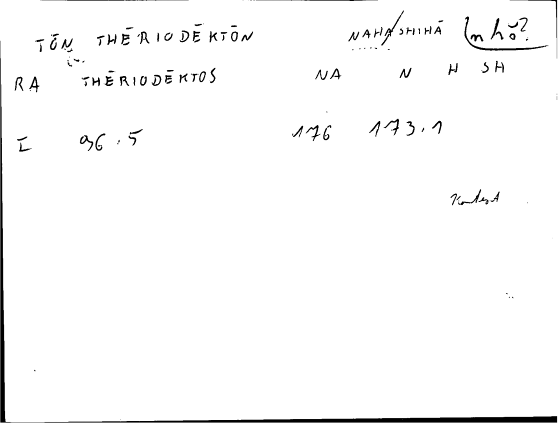 TŌN THĒRIODĒKTŌN NAHA/SHIHĀ nhŏ?
RA THĒRIODĒKTOS NA N H SH
I 96.5 176 173.1
Kontext